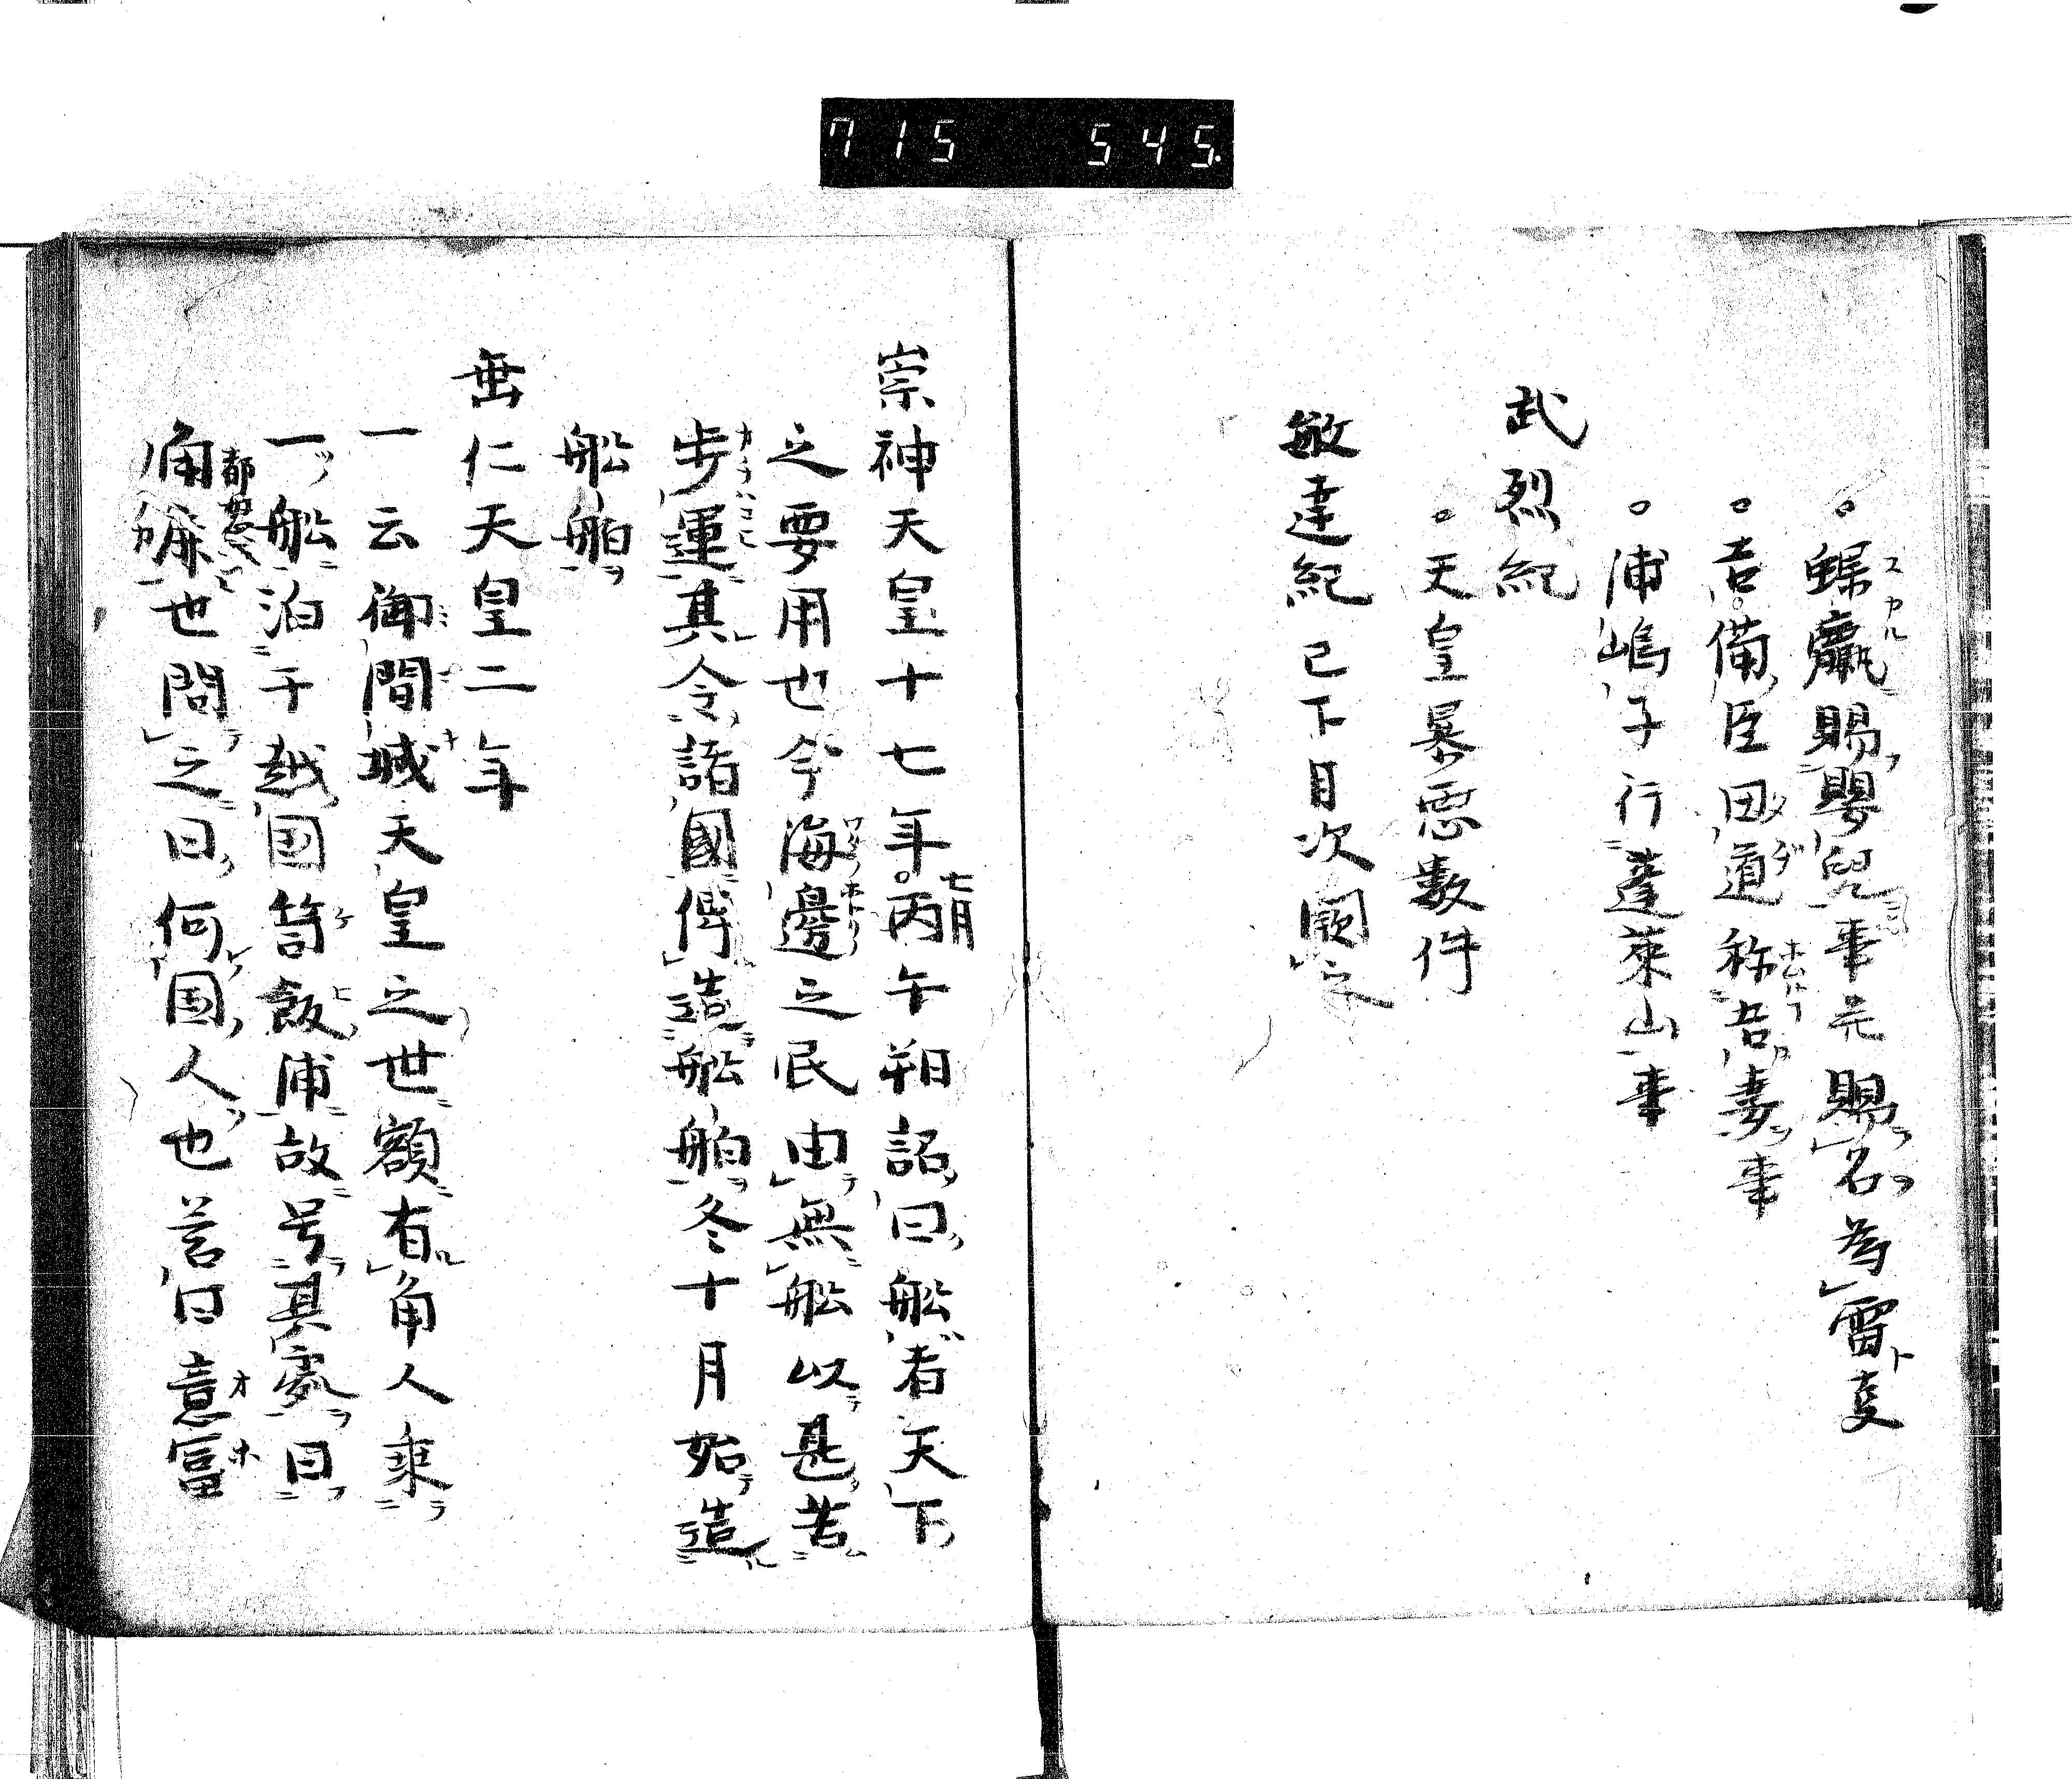 715 545.
。蜾蠃賜嬰児事并賜名為雷事
。吉備臣田道称吾妻事
。浦嶋子行蓬莱山事
武烈紀
。天皇暴悪数件
敏達紀 已下目次闕之
崇神天皇十七年。七月丙午朔詔曰船者天下
之要用也今海邊之民由無船以甚苦
歩運其令諸國俾造船舶冬十月始造
船舶
垂仁天皇二年
一云御間城天皇之世額有角人乗
一船泊于越国笥飯浦故号其処曰
角鹿世問之曰何国人也荅曰意冨